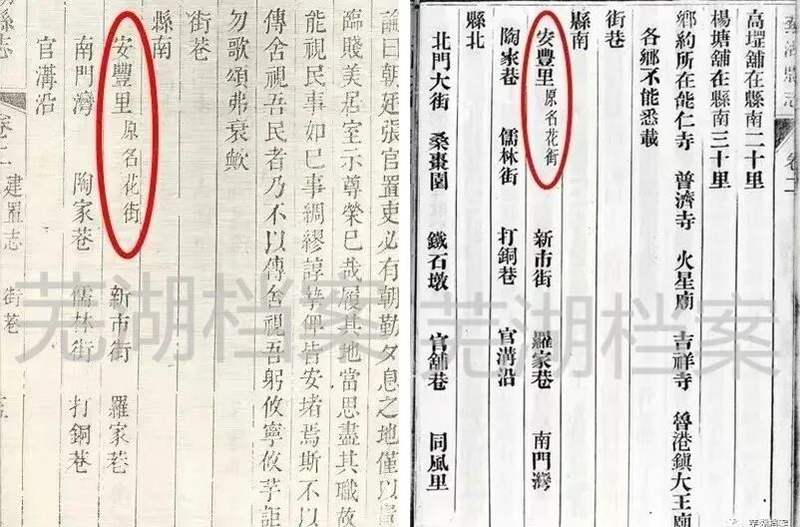 論曰朝廷張官置吏必有朝勤夕息之地僅以
臨賤美居室示尊榮已哉履其地當思盡其職故
能視民事如巳事綢繆諄摯俾皆安堵焉斯不以
傳舍視吾民者乃不以傳舍視吾躬攸寧攸芋詎
勿歌頌弗衰歟
街巷
縣南
安豐里 原名花街 新市街 羅家巷
南門灣 陶家巷 儒林街 打銅巷
官溝沿
縣志 卷二 建置志 街巷
高壩舖在縣南二十里
楊塘舖在縣南三十里
鄉約所在能仁寺 普濟寺 火星廟 吉祥寺 魯港鎮大王廟
各鄉不能悉載
街巷
縣南
安豐里 原名花街 新市街 羅家巷 南門灣
陶家巷 儒林街 打銅巷 官溝沿
縣北
北門大街 桑棗園 鐵石墩 官舖巷 同風里
蕪湖縣志 卷二
芜湖档案
芜湖档案